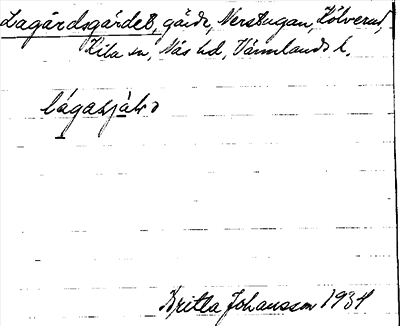 Lagårdsgärdet, gärde, Nerstugan, Hölverud,
Kila sn, Näs hd, Värmlands l.
Britta Johansson 1934